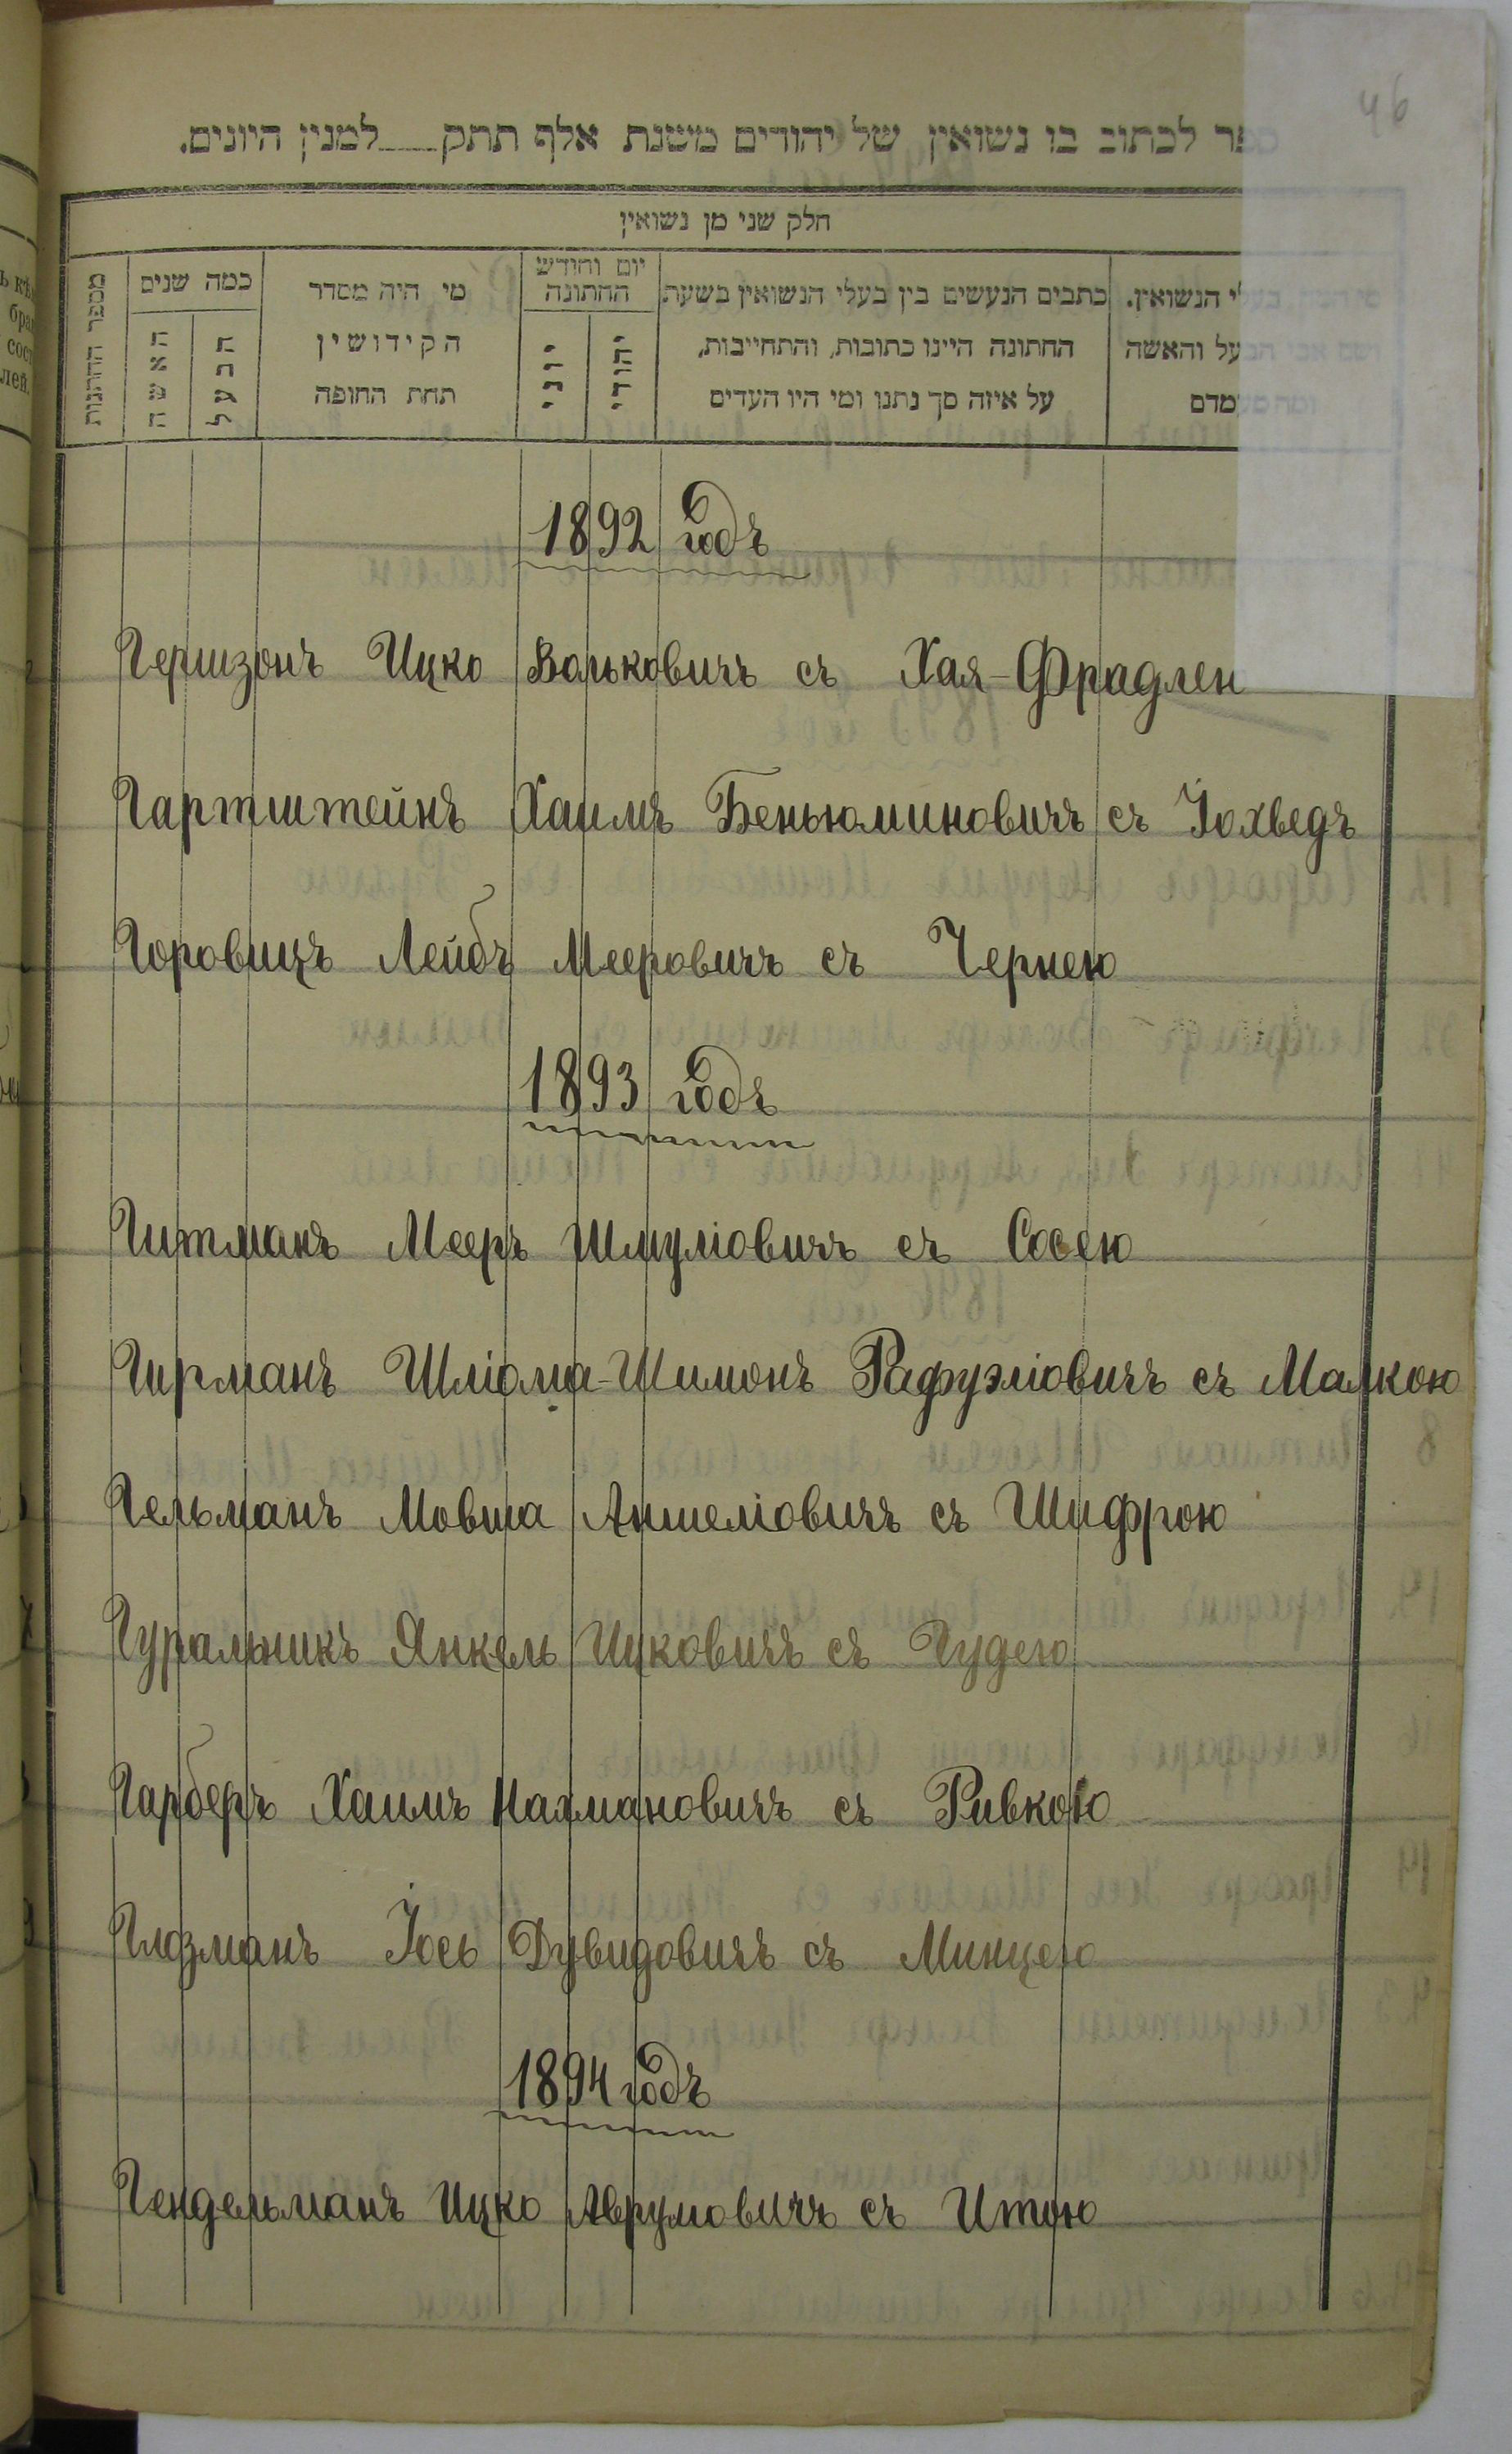 46
ספר לכתוב בו נשואין של יהודים משנת אלף תתק למנין היונים.
חלק שני מן נשואין
מספר החתונות
כמה שנים
האשה
הבעל
מי היה מסדר
הקידושין
תחת החופה
יום וחודש
החתונה
יוני
יהודי
כתבים הנעשים בין בעלי הנשואין בשעת
החתונה היינו כתובות, והתחייבות,
על איזה סך נתנו ומי היו העדים
הנשואין.
והאשה
1892 годъ
Гершзонъ Ицко Вольковичъ съ Хая-Фрадлен
Гартштейнъ Хаимъ Беньюминовичъ съ Іохведъ
Горовицъ Лейбъ Мееровичъ съ Чернею
1893 годъ
Гитманъ Мееръ Шмуліовичъ съ Сосею
Гирманъ Шліома-Шимонъ Рафуэліовичъ съ Малкою
Гельманъ Мовша Аншеліовичъ съ Шифрою
Гуральникъ Янкель Ицковичъ съ Гудею
Гарберъ Хаимъ Нахмановичъ съ Ривкою
Глозманъ Іось Дувидовичъ съ Минцею
1894 годъ
Гендельманъ Ицко Аврумовичъ съ Итою